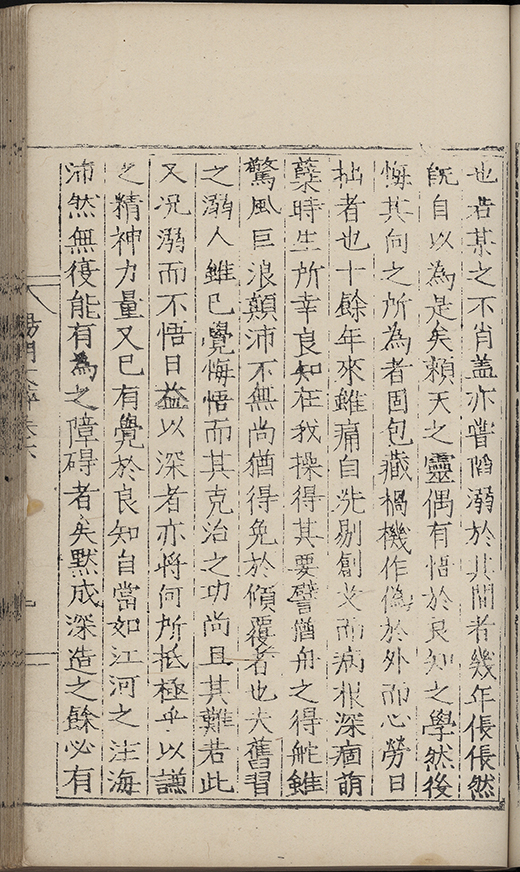 也若某之不肖盖亦嘗陷溺於其間者幾年倀倀然
旣自以為是矣賴天之靈偶有悟於良知之學然後
悔其向之所為者固包藏禍機作偽於外而心勞日
拙者也十餘年來雖痛自洗剔創艾而病根深痼萌
蘖時生所幸良知在我操得其要譬猶舟之得舵雖
驚風巨浪顛沛不無尚猶得免於傾覆者也夫舊習
之溺人雖已覺悔悟而其克治之功尚且其難若此
又况溺而不悟日益以深者亦將何所抵極乎以謙
之精神力量又已有覺於良知自當如江河之注海
沛然無復能有為之障碍者矣默成深造之餘必有
陽明 卷六